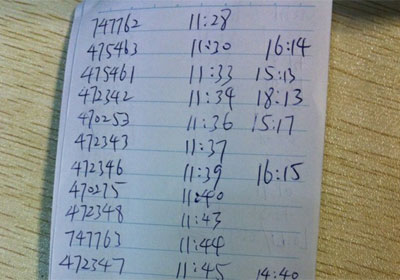 747762 11:28
475463 11:30 16:14
475461 11:33 15:13
472342 11:34 18:13
470253 11:36 15:17
472343 11:37
472346 11:39 16:15
470275 11:40
472348 11:43
747763 11:44
472347 11:45 14:40